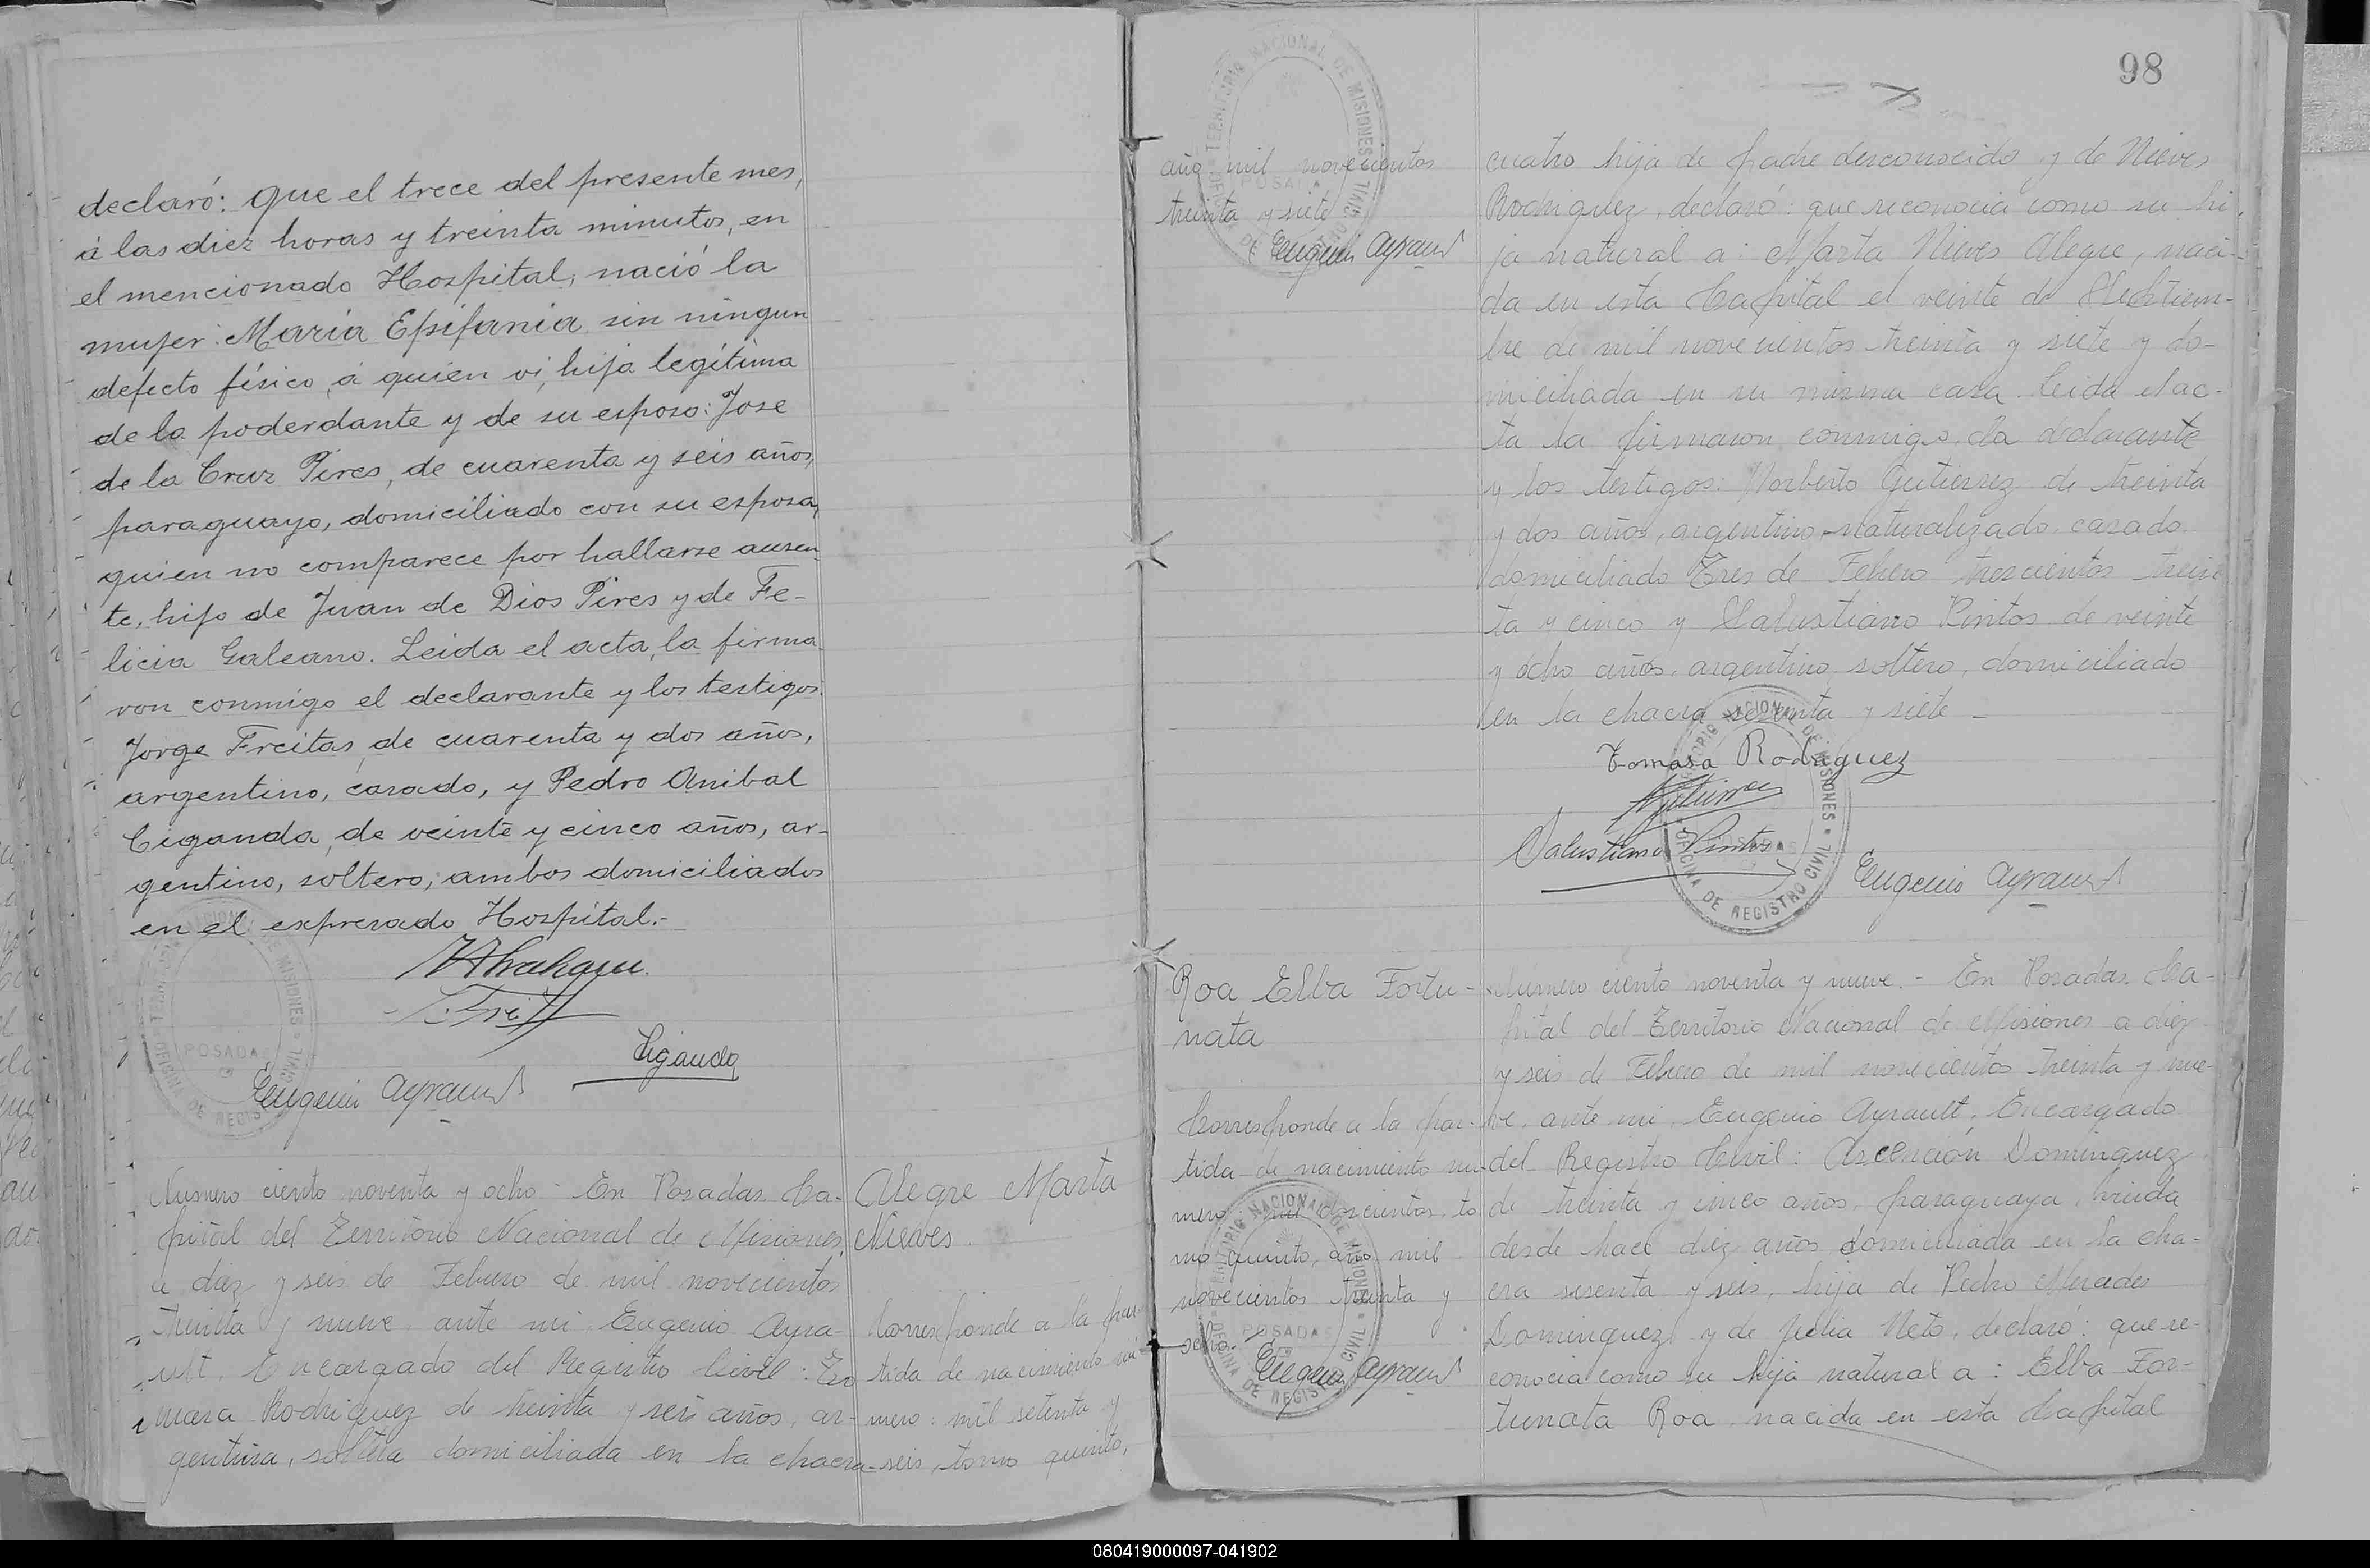 declaró: que el trece del presente mes,
á las diez horas y treinta minutos, en
el mencionado Hospital, nació la
mujer: María Epifania sin ningun
defecto físico, á quien vi, hija legítima
de la poderdante y de su esposo: Jose
de la Cruz Pires, de cuarenta y seis años,
paraguayo, domiciliado con su esposa,
quien no comparece por hallarse ausen
te, hijo de Juan de Dios Pires y de Fe-
licia Galeano. Leida el acta, la firma
ron conmigo el declarante y los testigos:
Jorge Freitas, de cuarenta y dos años,
argentino, casado, y Pedro Anibal
Ciganda, de veinte y cinco años, ar-
gentino, soltero, ambos domiciliados
en el expresado Hospital.-
Ciganda
Eugenio Ayrault
Numero ciento noventa y ocho - En Posadas Ca-
pital del Territorio Nacional de Misiones,
a diez y seis de Febrero de mil novecientos
treinta y nueve, ante mi, Eugenio Ayra-
ult, Encargado del Registro Civil: To
masa Rodriguez de treinta y seis años, ar-
gentina, soltera domiciliada en la chacra
Alegre Marta
Nieves
Corresponde a la par
tida de nacimiento nú
mero: mil setenta y
seis, tomo quinto,
98
año mil novecientos
treinta y siete
Eugenio Ayrault
cuatro hija de padre desconocido y de Nieves
Rodriguez, declaró: que reconocia como su hi
ja natural a: Marta Nieves Alegre, naci-
da en esta Capital el veinte de Septiem-
bre de mil novecientos treinta y siete y do-
miciliada en su misma casa. Leida el ac-
ta la firmaron conmigo, la declarante
y los testigos: Norberto Gutierrez de treinta
y dos años, argentino naturalizado, casado,
domiciliado Tres de Febrero trescientos trein
ta y cinco y Salustiano Pintos de veinte
y ocho años, argentino, soltero, domiciliado
en la chacra sesenta y siete -
Tomasa Rodriguez
Salustiano Pintos
Eugenio Ayrault
TERRITORIO NACIONAL DE MISIONES
POSADAS
OFICINA DE REGISTRO CIVIL
Roa Elba Fortu-
nata
Corresponde a la par-
tida de nacimiento nu
mero: mil doscientos, to
mo quinto, año mil
novecientos treinta y
ocho.
Eugenio Ayrault
Número ciento noventa y nueve. - En Posadas, Ca-
pital del Territorio Nacional de Misiones a diez
y seis de Febrero de mil novecientos treinta y nue-
ve, ante mi, Eugenio Ayrault, Encargado
del Registro Civil: Ascención Dominguez
de treinta y cinco años, paraguaya, viuda
desde hace diez años domiciliada en la cha-
cra sesenta y seis, hija de Pedro Mercedes
Dominguez y de Julia Neto, declaró: que re-
conocia como su hija natural a: Elba For-
tunata Roa nacida en esta Capital
080419000097-041902